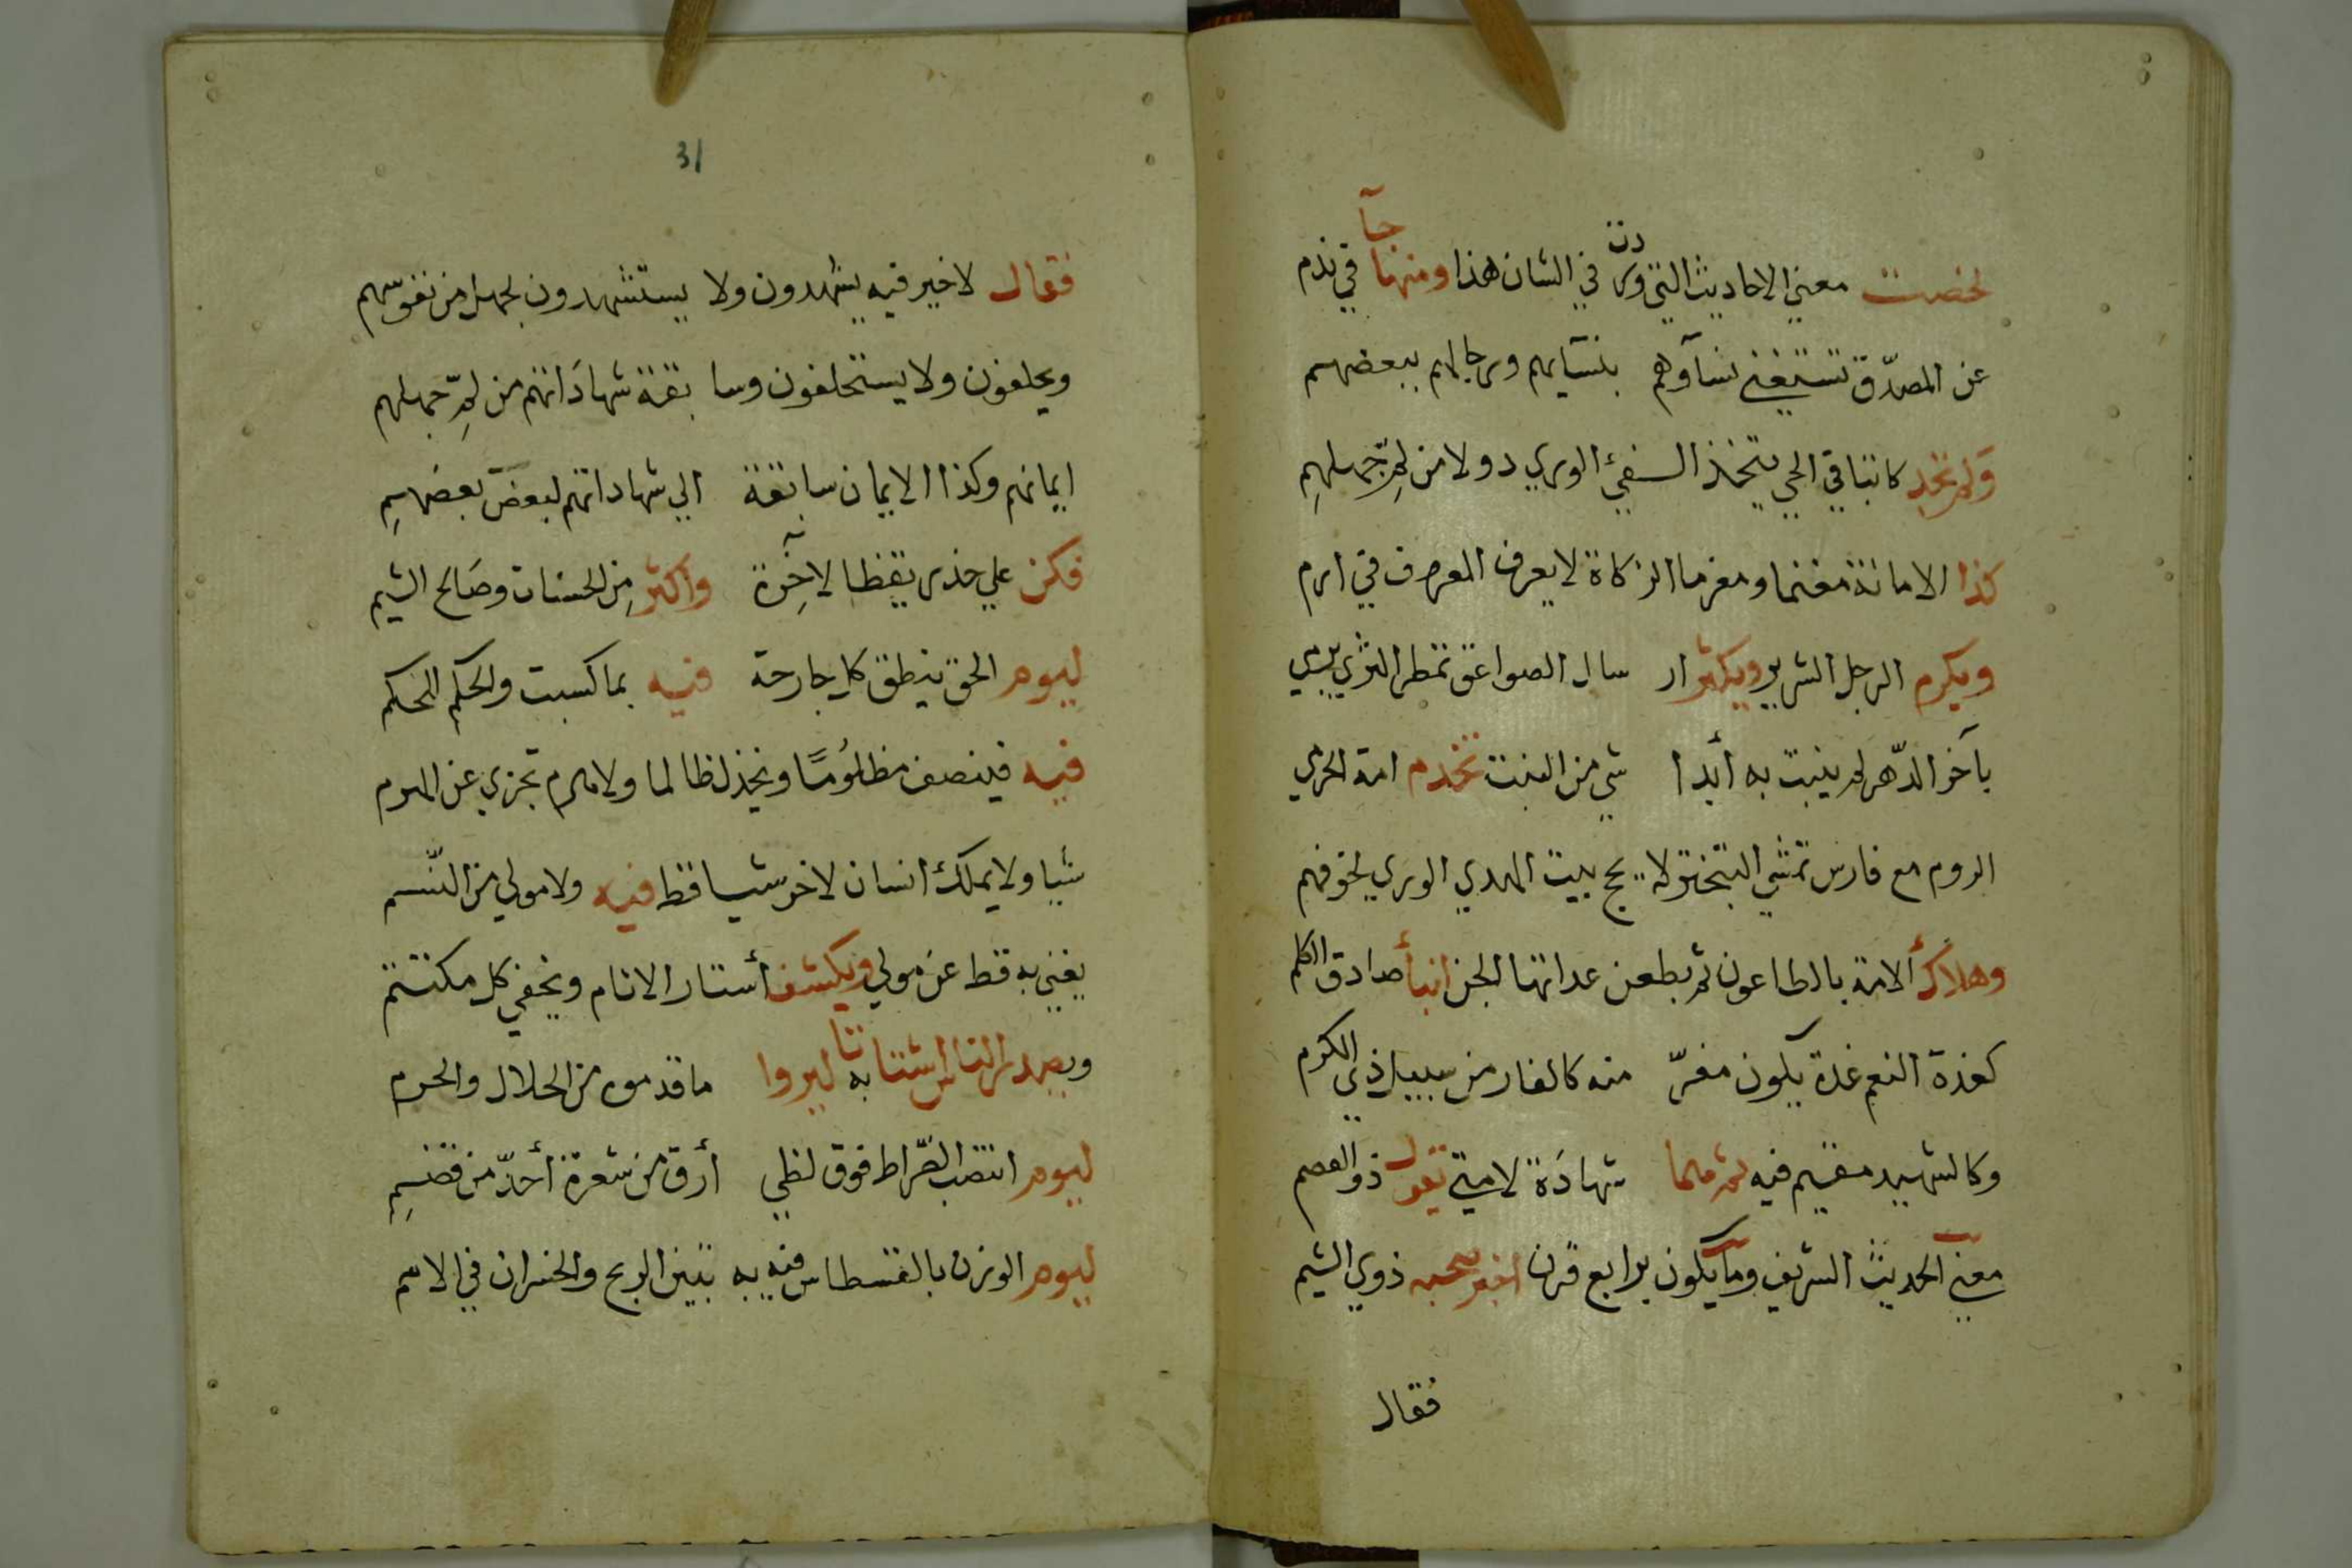 لخصت معني الاحاديث التي وردن في الشان هذا ومنها جآ في ندم
عن المصدّق تستغني نسآوهم بنسآيهم ورجالهم ببعضهم
ولم نجد كاتبا في الحي يتخذ الفئ الوري دولا من لمّ جهلهم
كذا الامانة مغنما ومغرما الزكاة لا يعرف المعرف في ارم
ويكرم الرجل الشرير ويكثر ار سال الصواعق تمطر الثري برمي
بآخر الدّهر لم ينبت به أبدا شي من النبت تخدم امة الحزي
الروم مع فارس تمشي التبختر لا يحج بيت المهدي الوري لخوفهم
وهلاك ألامة بالطاعون ثم بطعن عداتها الجن انبأ صادق الكلم
كغدة النعم غدة يكون مفرّ منه كالفار من سبيل ذي الكرم
وكالشهيد مقيم فيه ثم ملما شهادَة لاميتي تقول ذو العصم
معني الحديث الشريف وما يكون برابع قرن اخبر صحبه ذوي الشيم
فقال
31
فقال لا خير فيه يشهدون ولا يستشهدون لجهل من نفوسهم
ويحلفون ولا يستحلفون وسا بقة شهادَاتهم من لمّ جهلهم
ايمانهم وكذا الايمان سابقة الي شهاداتهم لبعض بعضهم
فكن علي حذر يقظا لاخِرة واكثر مِن الحسنات وصَالح الشيم
ليوم الحق ينطق كل جارحة فيه بما كسبت والحكم للحكم
فيه فينصف مظلومًا ويخذل ظالما ولا مرم تجزي عن المرم
شيا ولا يملك انسان لاخر شيا قط فيه ولا مولي من النّسم
يغني به قط عن مولي ويكشف أستار الانام ويخفي كل مكتتم
ويصدر الناس اشتاتا به ليروا ما قدموه من الحلال والحرم
ليوم انتصب الصّراط فوق لظي أرق من شعرة أحدّ من قضمِ
ليوم الوزن بالقسطاس فيه به تبين الربح والخسران في الامم